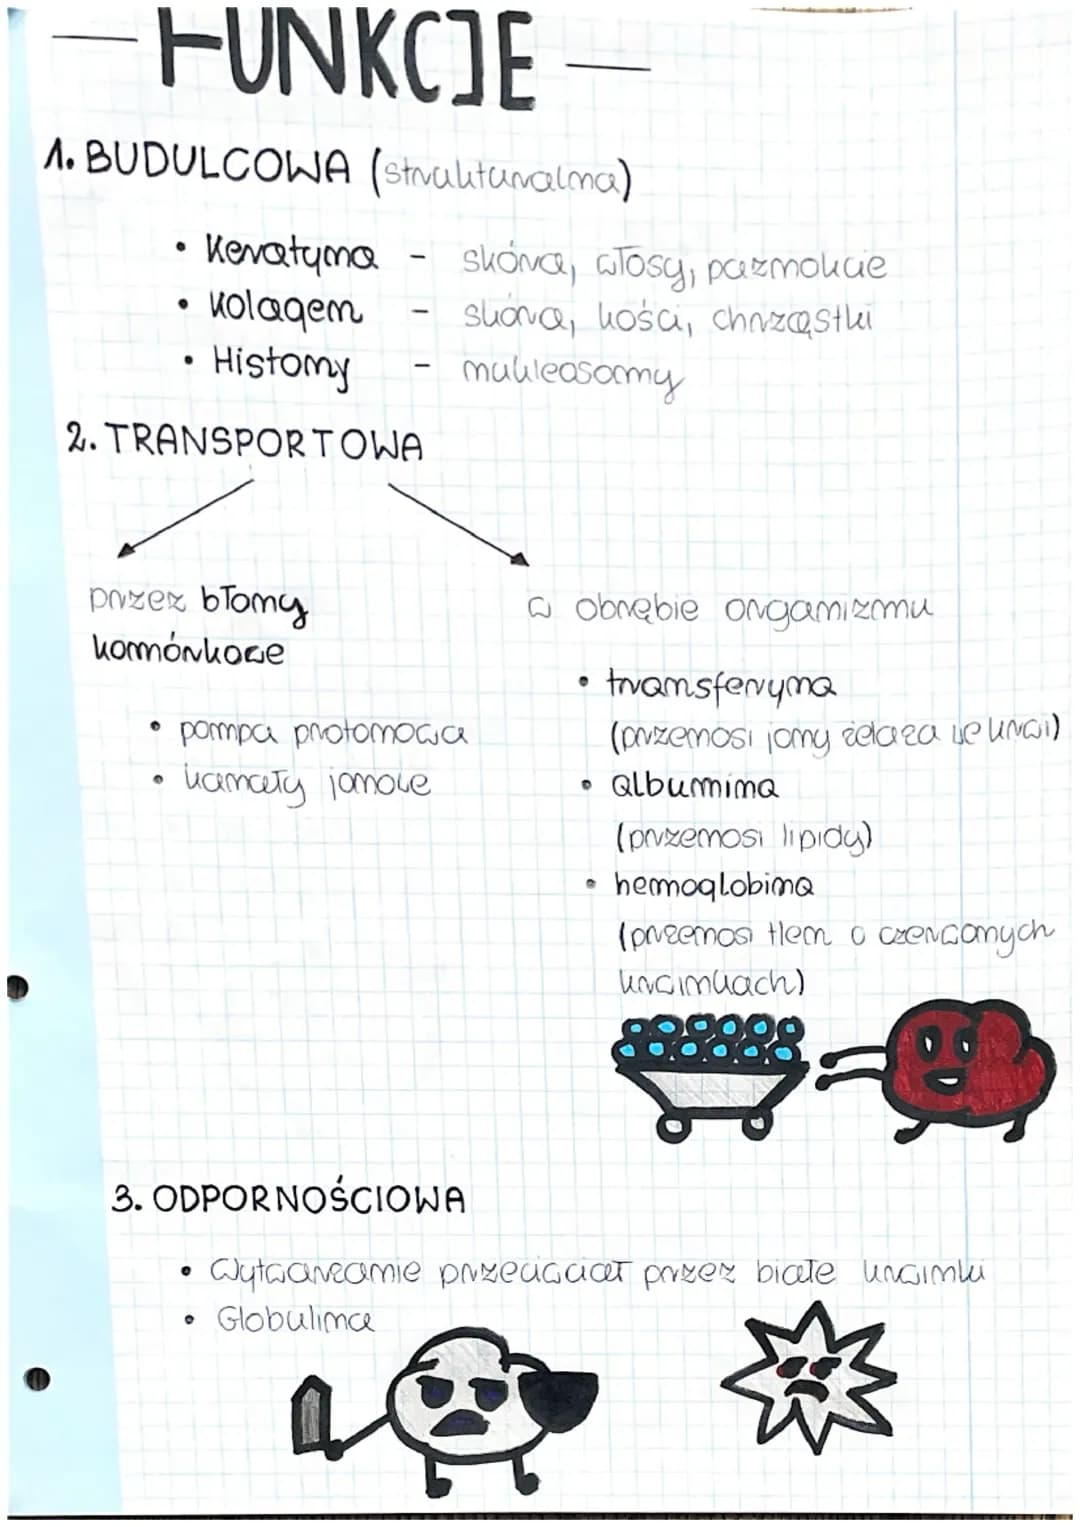 FUNKCJE
1. BUDULCOWA (strukturalna)
• Keratyna - skóra, włosy, paznokcie
• Kolagen - skóra, kości, chrząstki
• Histony - nukleosomy
2. TRANSPORTOWA
przez błony komórkowe
w obrębie organizmu
• pompa protonowa
• kanały jonowe
• transferyna
(przenosi jony żelaza we krwi)
• albumina
(przenosi lipidy)
• hemoglobina
(przenosi tlen w czerwonych
krwinkach)
3. ODPORNOŚCIOWA
• Wytwarzanie przeciwciał przez białe krwinki
• Globulina